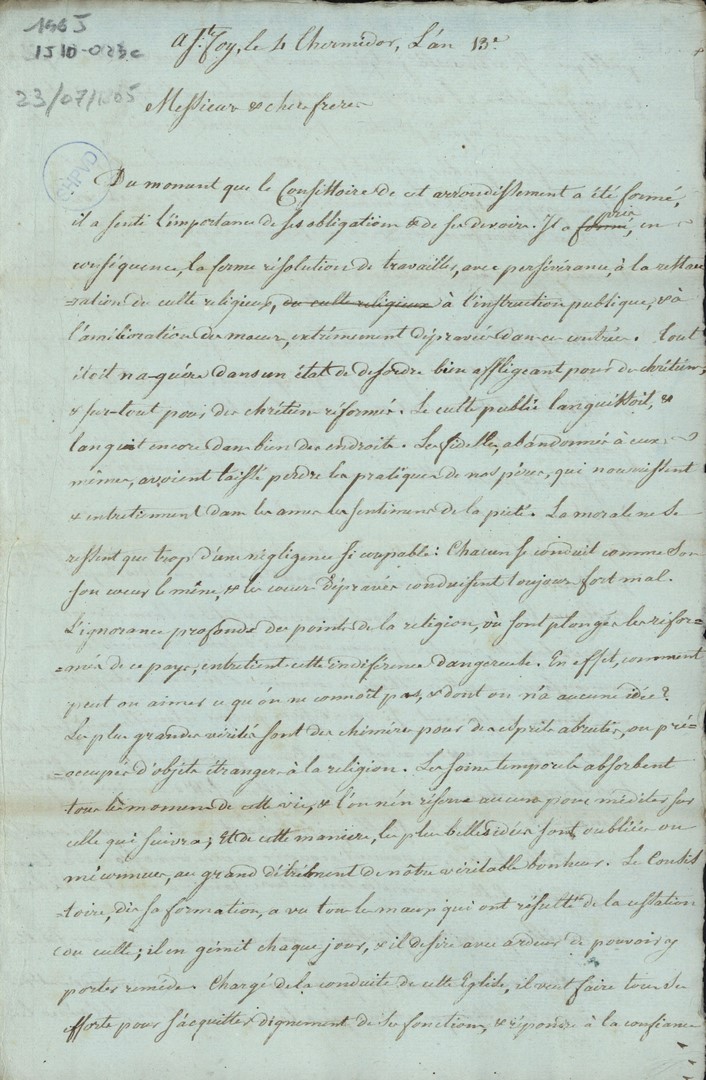 1565
1J10-023c
23/07/1805
CHPVD
A Ste. Foy, le 4 Thermidor, L'an 13e
Messieurs & chers freres
Du moment que le Consistoire de cet arrondissement a été formé,
il a senti l'importance de ses obligations & de ses devoirs. Il a formé pris, en
conséquence, la ferme résolution de travailler, avec persévérance, à la restau
=ration du culte religieux, du culte religieux à l'instruction publique, & à
l'amélioration des mœurs, extrémement dépravées dans ces contrées. Tout
étoit na-guére dans un état de désordre bien affligeant pour des chrétiens,
& sur-tout pour des chrétiens réformés. Le culte public languissoit, &
languit encore dans bien des endroits. Les fidelles, abandonnés à eux
mêmes, avoient laissé perdre les pratiques de nos péres, qui nourrissent
& entretiennent dans les ames les sentimens de la piété. La morale ne se
ressent que trop d'une négligence si coupable: Chacun se conduit comme son
son cœur le méne, & les cœurs dépravés conduisent toujours fort mal.
L'ignorance profonde des points de la religion, où sont plongés les réfor=
=més de ce pays, entretient cette indiférence dangereuse. En effet, comment
peut on aimer ce qu'on ne connoît pas, & dont on n'a aucune idée?
Les plus grandes vérités sont des chiméres pour des esprits abrutis, ou pré=
=occupés d'objets étrangers à la religion. Les soins temporels absorbent
tous les momens de cette vie, & l'on n'en réserve aucuns pour méditer sur
celle qui suivra; Et de cette maniére, les plus belles idées sont oubliées ou
méconnues, au grand détriment de nôtre véritable bonheur. Le Consis
=toire, dès sa formation, a vu tous les maux qui ont résulté de la cessation
du culte; il en gémit chaque jour, & il desire avec ardeur de pouvoir y
porter reméde. Chargé de la conduite de cette Eglise, il veut faire tous ses
efforts pour s'acquitter dignement de ses fonctions, & répondre à la confiance